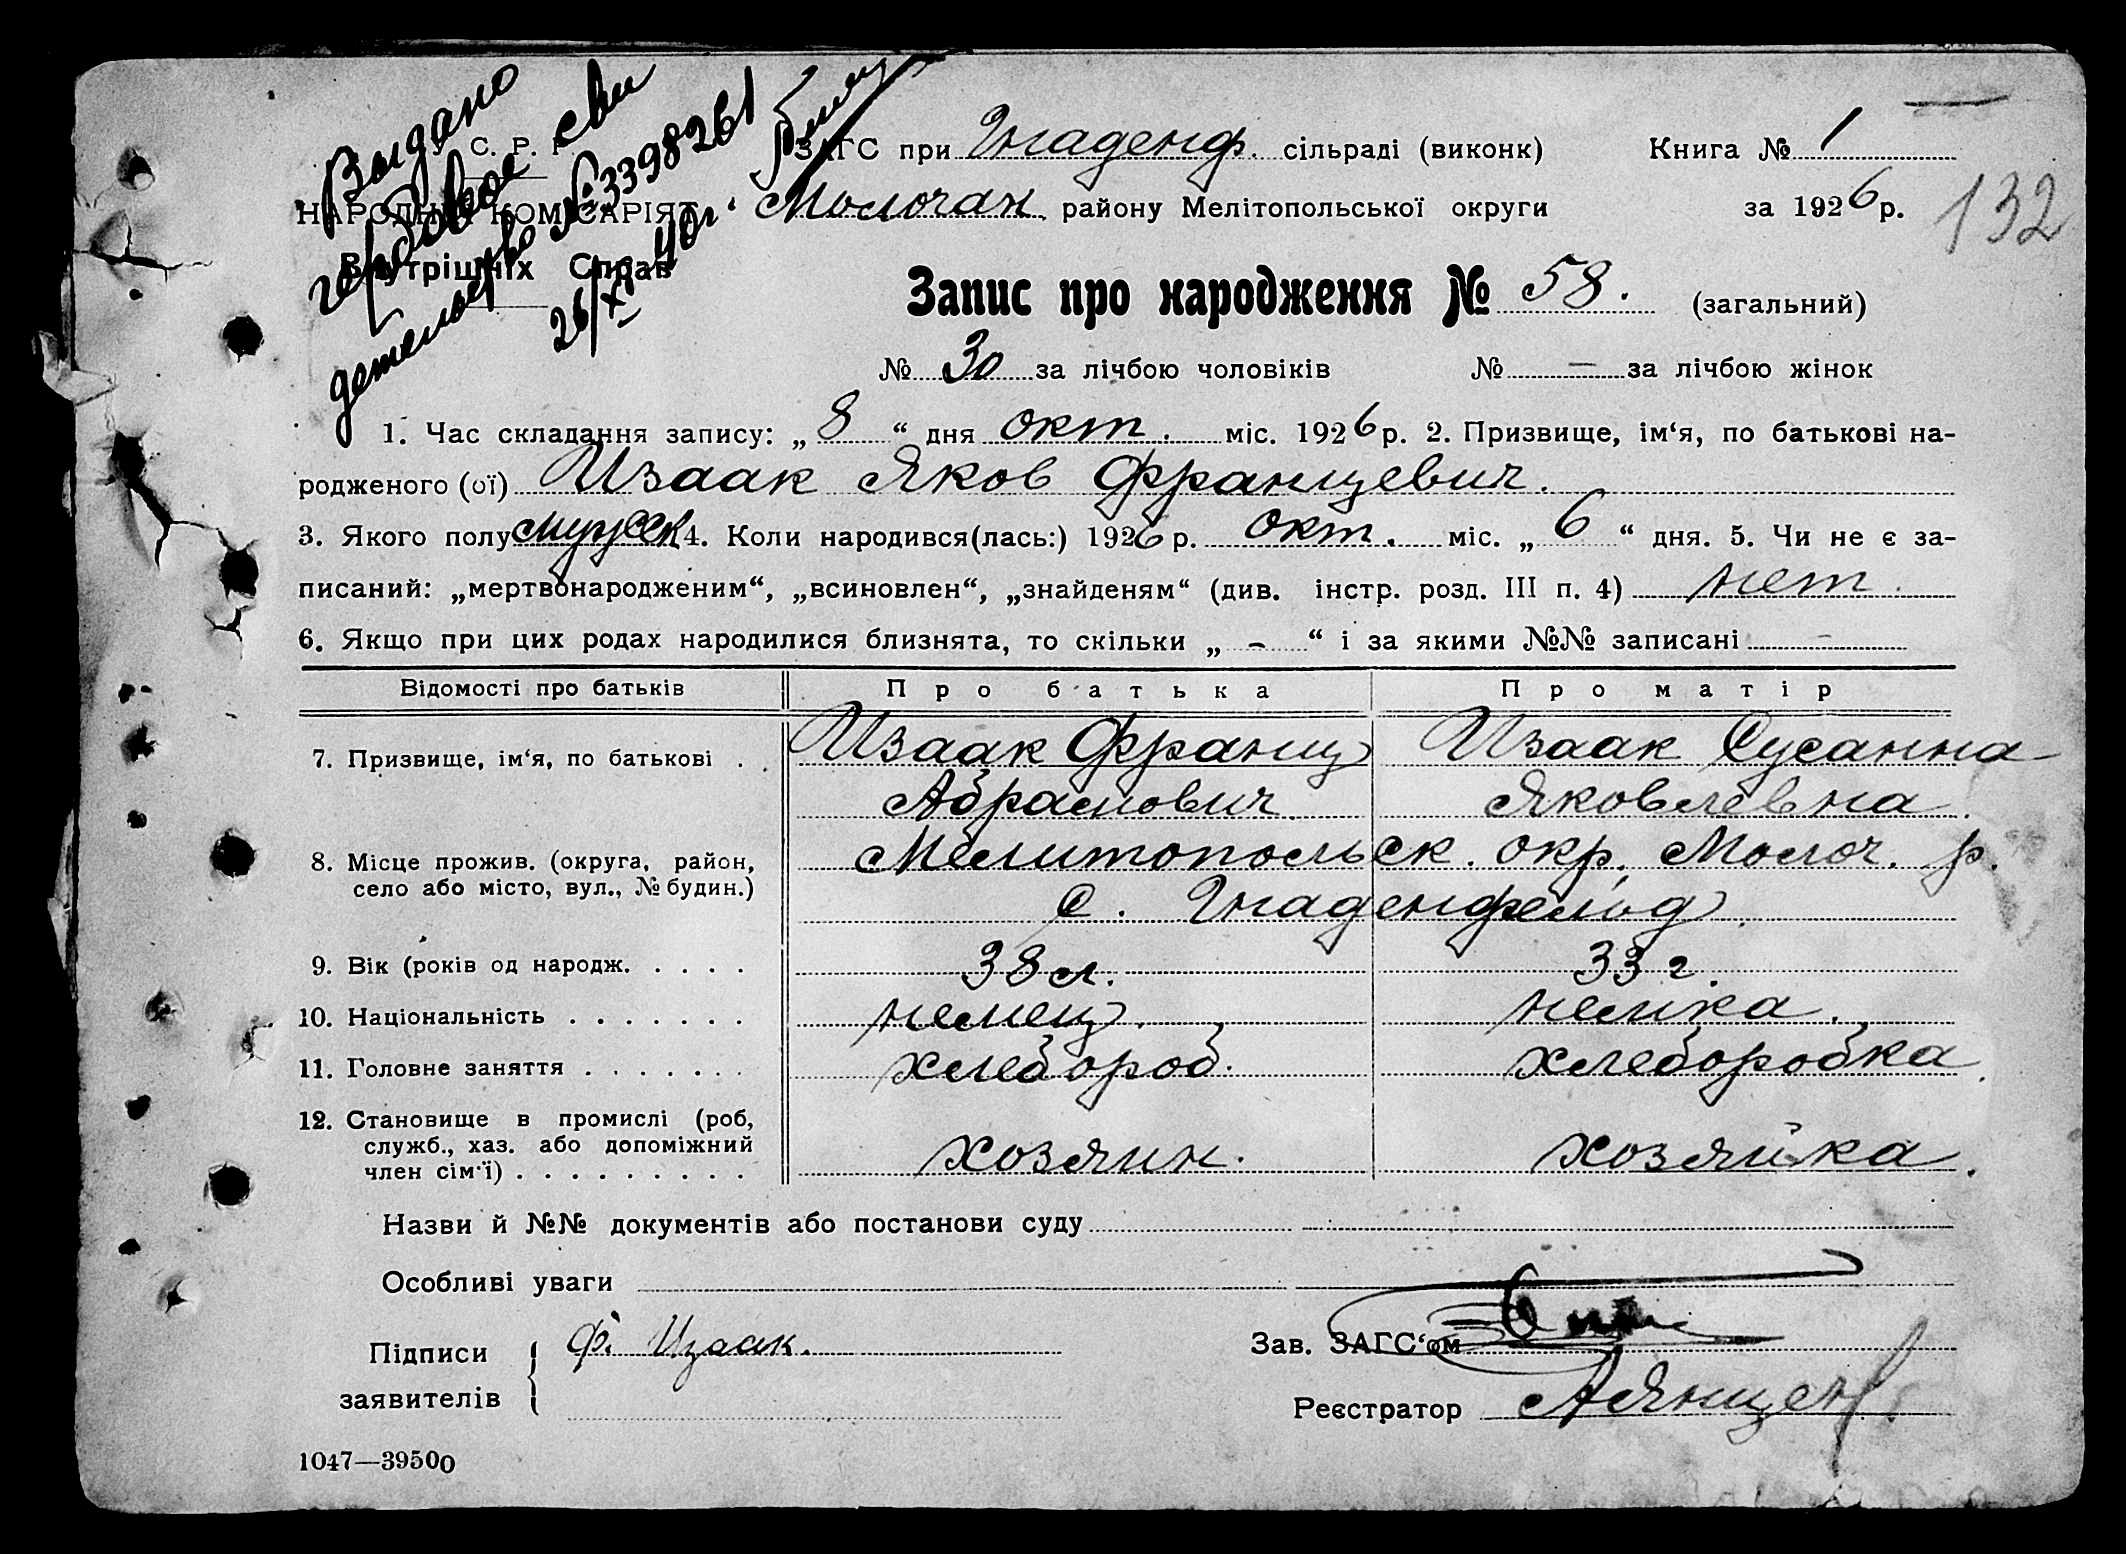 Выдано
гербовое сви
детельство № 3398261
26/XI 40г.
С. Р. Р.
НАРОДНИЙ КОМІСАРІЯТ
Внутрішніх Справ
ЗАГС при Гнаденф. сільраді (виконк) Книга № 1
Молочан. району Мелітопольської округи за 1926 р. 132
Запис про народження № 58. (загальний)
№ 30 за лічбою чоловіків № — за лічбою жінок
1. Час складання запису: „ 8 “ дня окт. міс. 1926 р. 2. Призвище, ім‘я, по батькові на-
родженого (ої) Изаак Яков Францевич.
3. Якого полу мужск 4. Коли народився(лась:) 1926 р. окт. міс. „ 6 “ дня. 5. Чи не є за-
писаний: „мертвонародженим“, „всиновлен“, „знайденям“ (див. інстр. розд. III п. 4) нет.
6. Якщо при цих родах народилися близнята, то скільки „ - “ і за якими №№ записані —
Відомості про батьків Про батька Про матір
7. Призвище, ім‘я, по батькові . . Изаак Франц Изаак Сусанна
Абрамович. Яковлевна.
8. Місце прожив. (округа, район, Мелитопольск. окр. Молоч. р.
село або місто, вул., № будин.) с. Гнаденфельд.
9. Вік (років од народж. . . . . 38 л. 33 г.
10. Національність . . . . . . . немец. немка.
11. Головне заняття . . . . . . . хлебороб. хлеборобка.
12. Становище в промислі (роб,
служб., хаз. або допоміжний
член сім‘ї) . . . . . . . . . хозяин. хозяйка.
Назви й №№ документів або постанови суду
Особливі уваги
Підписи Ф. Изаак. Зав. ЗАГС‘ом
заявителів Реєстратор АЯнцен
1047—39500